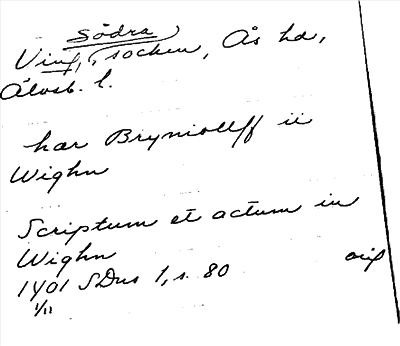 Södra
Ving, socken, Ås hd,
Älvsb. l.
har Bryniolff ii
Wighn
Scriptum et actum in
Wighn
1401 SDns 1, s. 80 orig
1/11